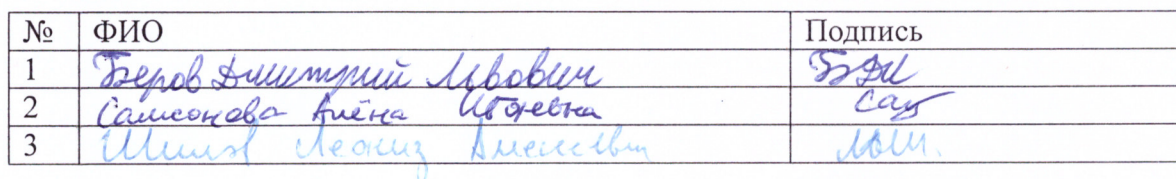 № ФИО Подпись
1 Беров Дмитрий Львович БДЛ
2 Самсонова Алёна Сам
3 Шилов Леонид Алексеевич